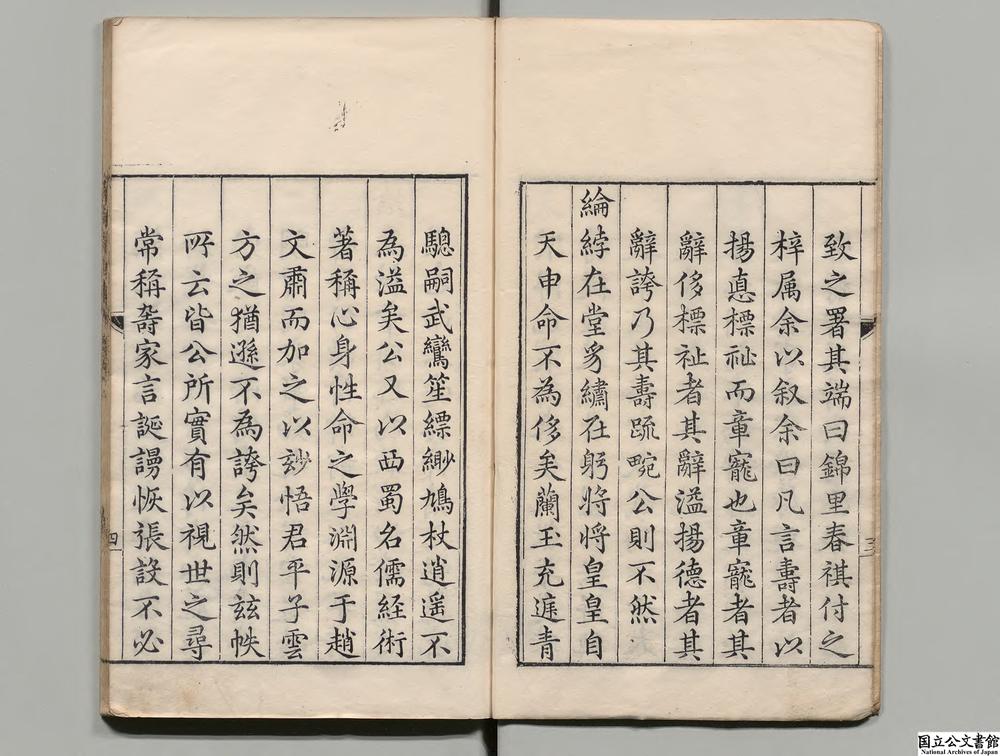 致之署其端曰錦里春祺付之
梓属余以叙余曰凡言壽者以
揚悳標祉而章寵也章寵者其
辭侈標祉者其辭溢揚德者其
辭誇乃其壽疏畹公則不然
綸綍在堂豸繡在躬將將皇皇自
天申命不為侈矣蘭玉充遲青
驄嗣武鸞笙縹緲鳩杖逍遥不
為溢矣公又以西蜀名儒経術
著稱心身性命之學淵源于趙
文肅而加之以玅悟君平子雲
方之猶遜不為誇矣然則玆帙
所云皆公所實有以視世之尋
常稱壽家言誕謾恢張設不必
三
四
国立公文書館
National Archives of Japan